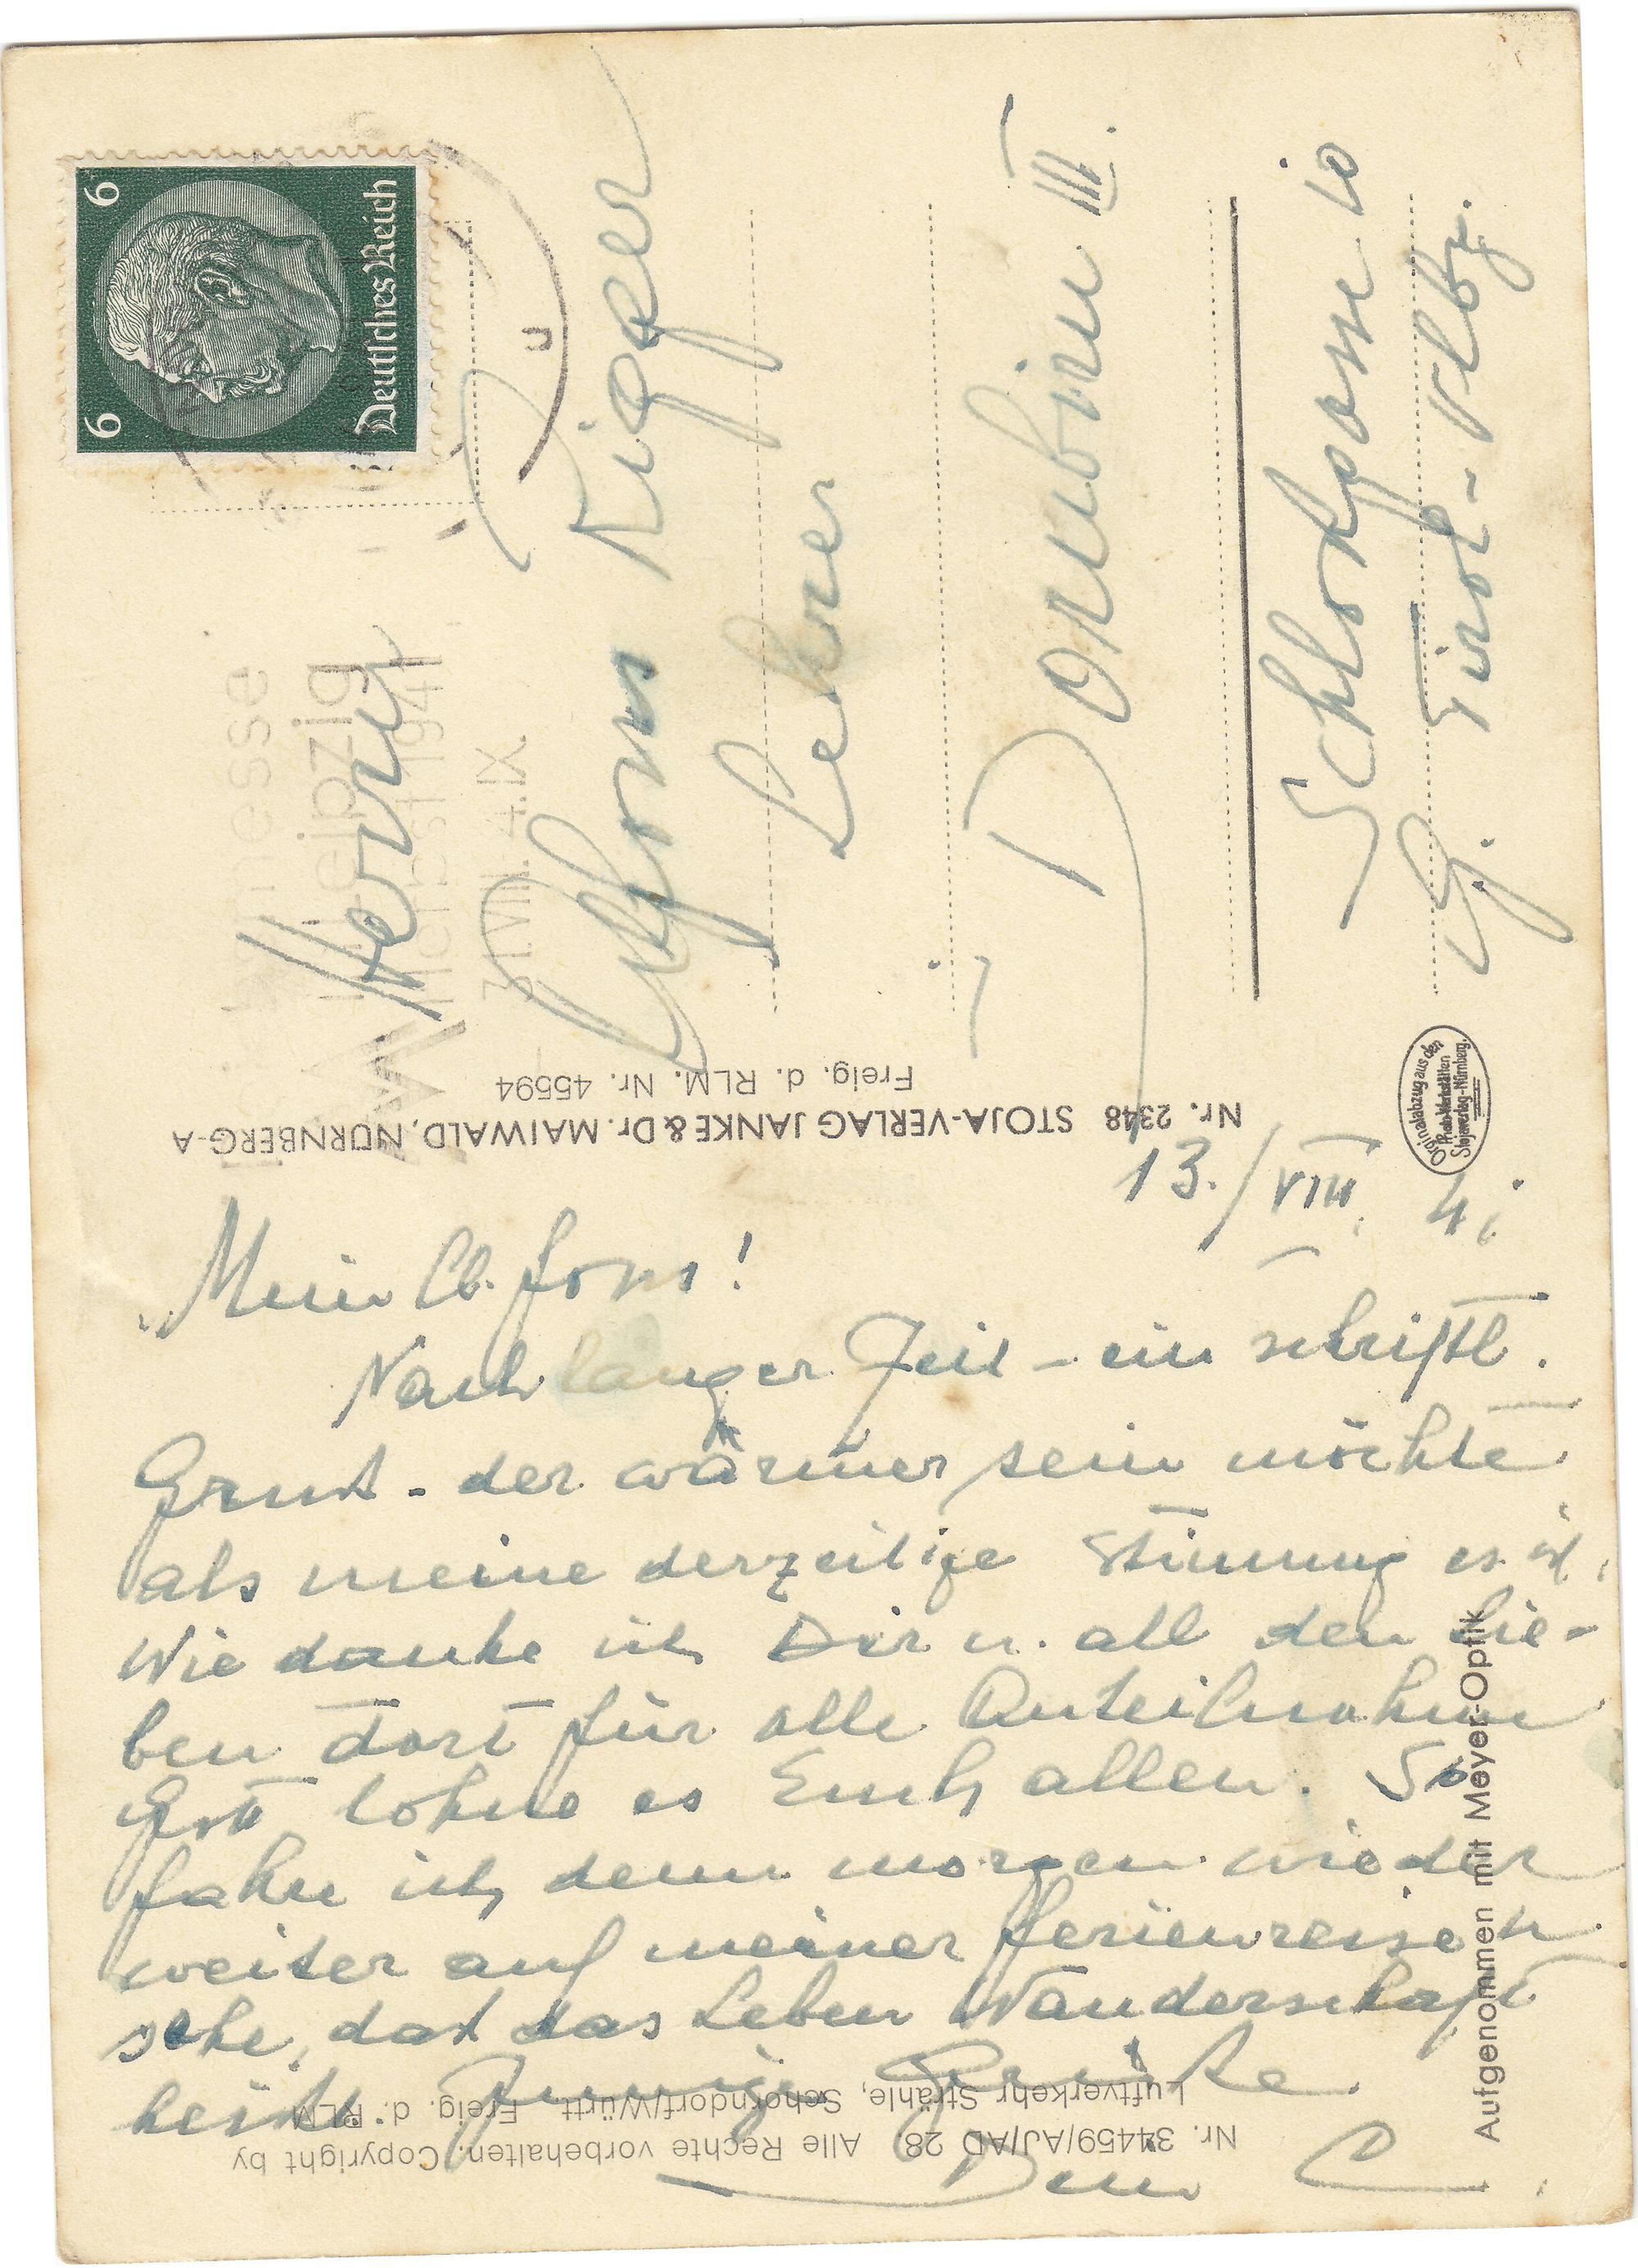 6 6
Deutsches Reich
Reichsmesse
Leipzig
Herbst 1941
31.VIII.-4.IX.
Herrn
Alfons Rigger
Lehrer
Dornbirn III.
Schloßgasse 10
G. Tirol-Vlbg.
Nr. 2348 STOJA-VERLAG JANKE & Dr. MAIWALD, NÜRNBERG-A
Freig. d. RLM. Nr. 45594
Orginalabzug aus den
Photo-Werkstätten
Stojaverlag-Nürnberg.
13./VIII. 41.
Mein lb. Fons!
Nach langer Zeit - ein schriftl.
Gruß - der wärmer sein möchte
als meine derzeitige Stimmung es ist.
Wie danke ich Dir u. all den Lie-
ben dort für alle Anteilnahme
Gott lohne es Euch allen. So
fahre ich denn morgen wieder
weiter auf meiner Ferienreise u
sehe, daß das Leben Wanderschaft
heißt Innige Grüße.
Dein C
Nr. 34459/AJ/AD 28 Alle Rechte vorbehalten. Copyright by
Luftverkehr Strähle, Schorndorf/Württ. Freig. d. RLM
Aufgenommen mit Meyer-Optik